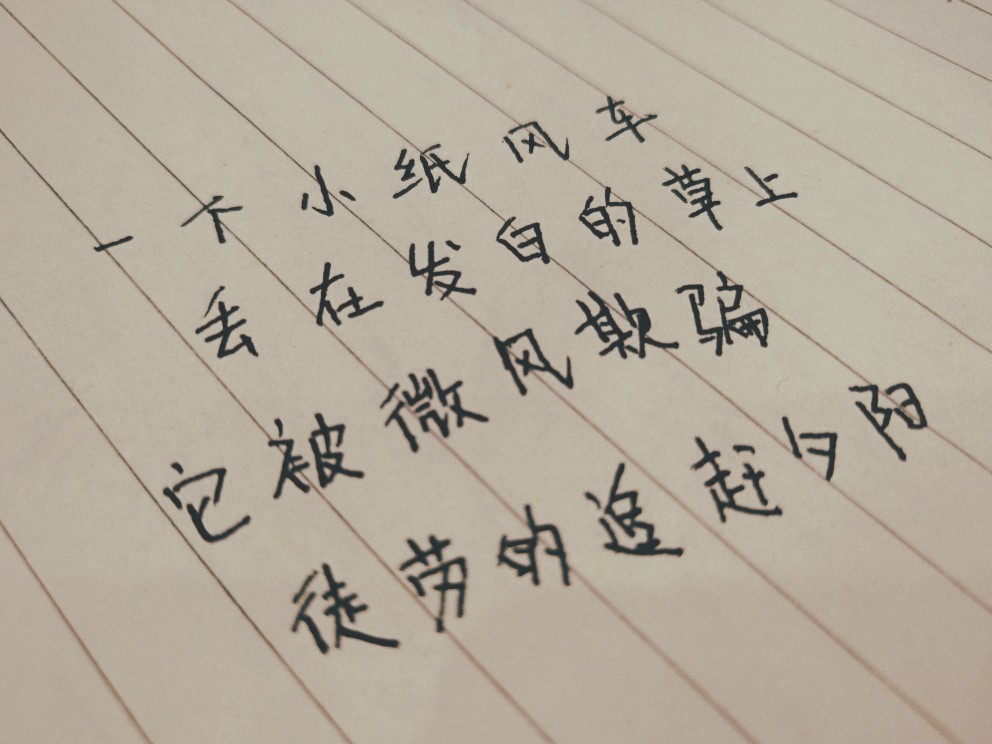 一个小纸风车
丢在发白的草上
它被微风欺骗
徒劳的追赶夕阳